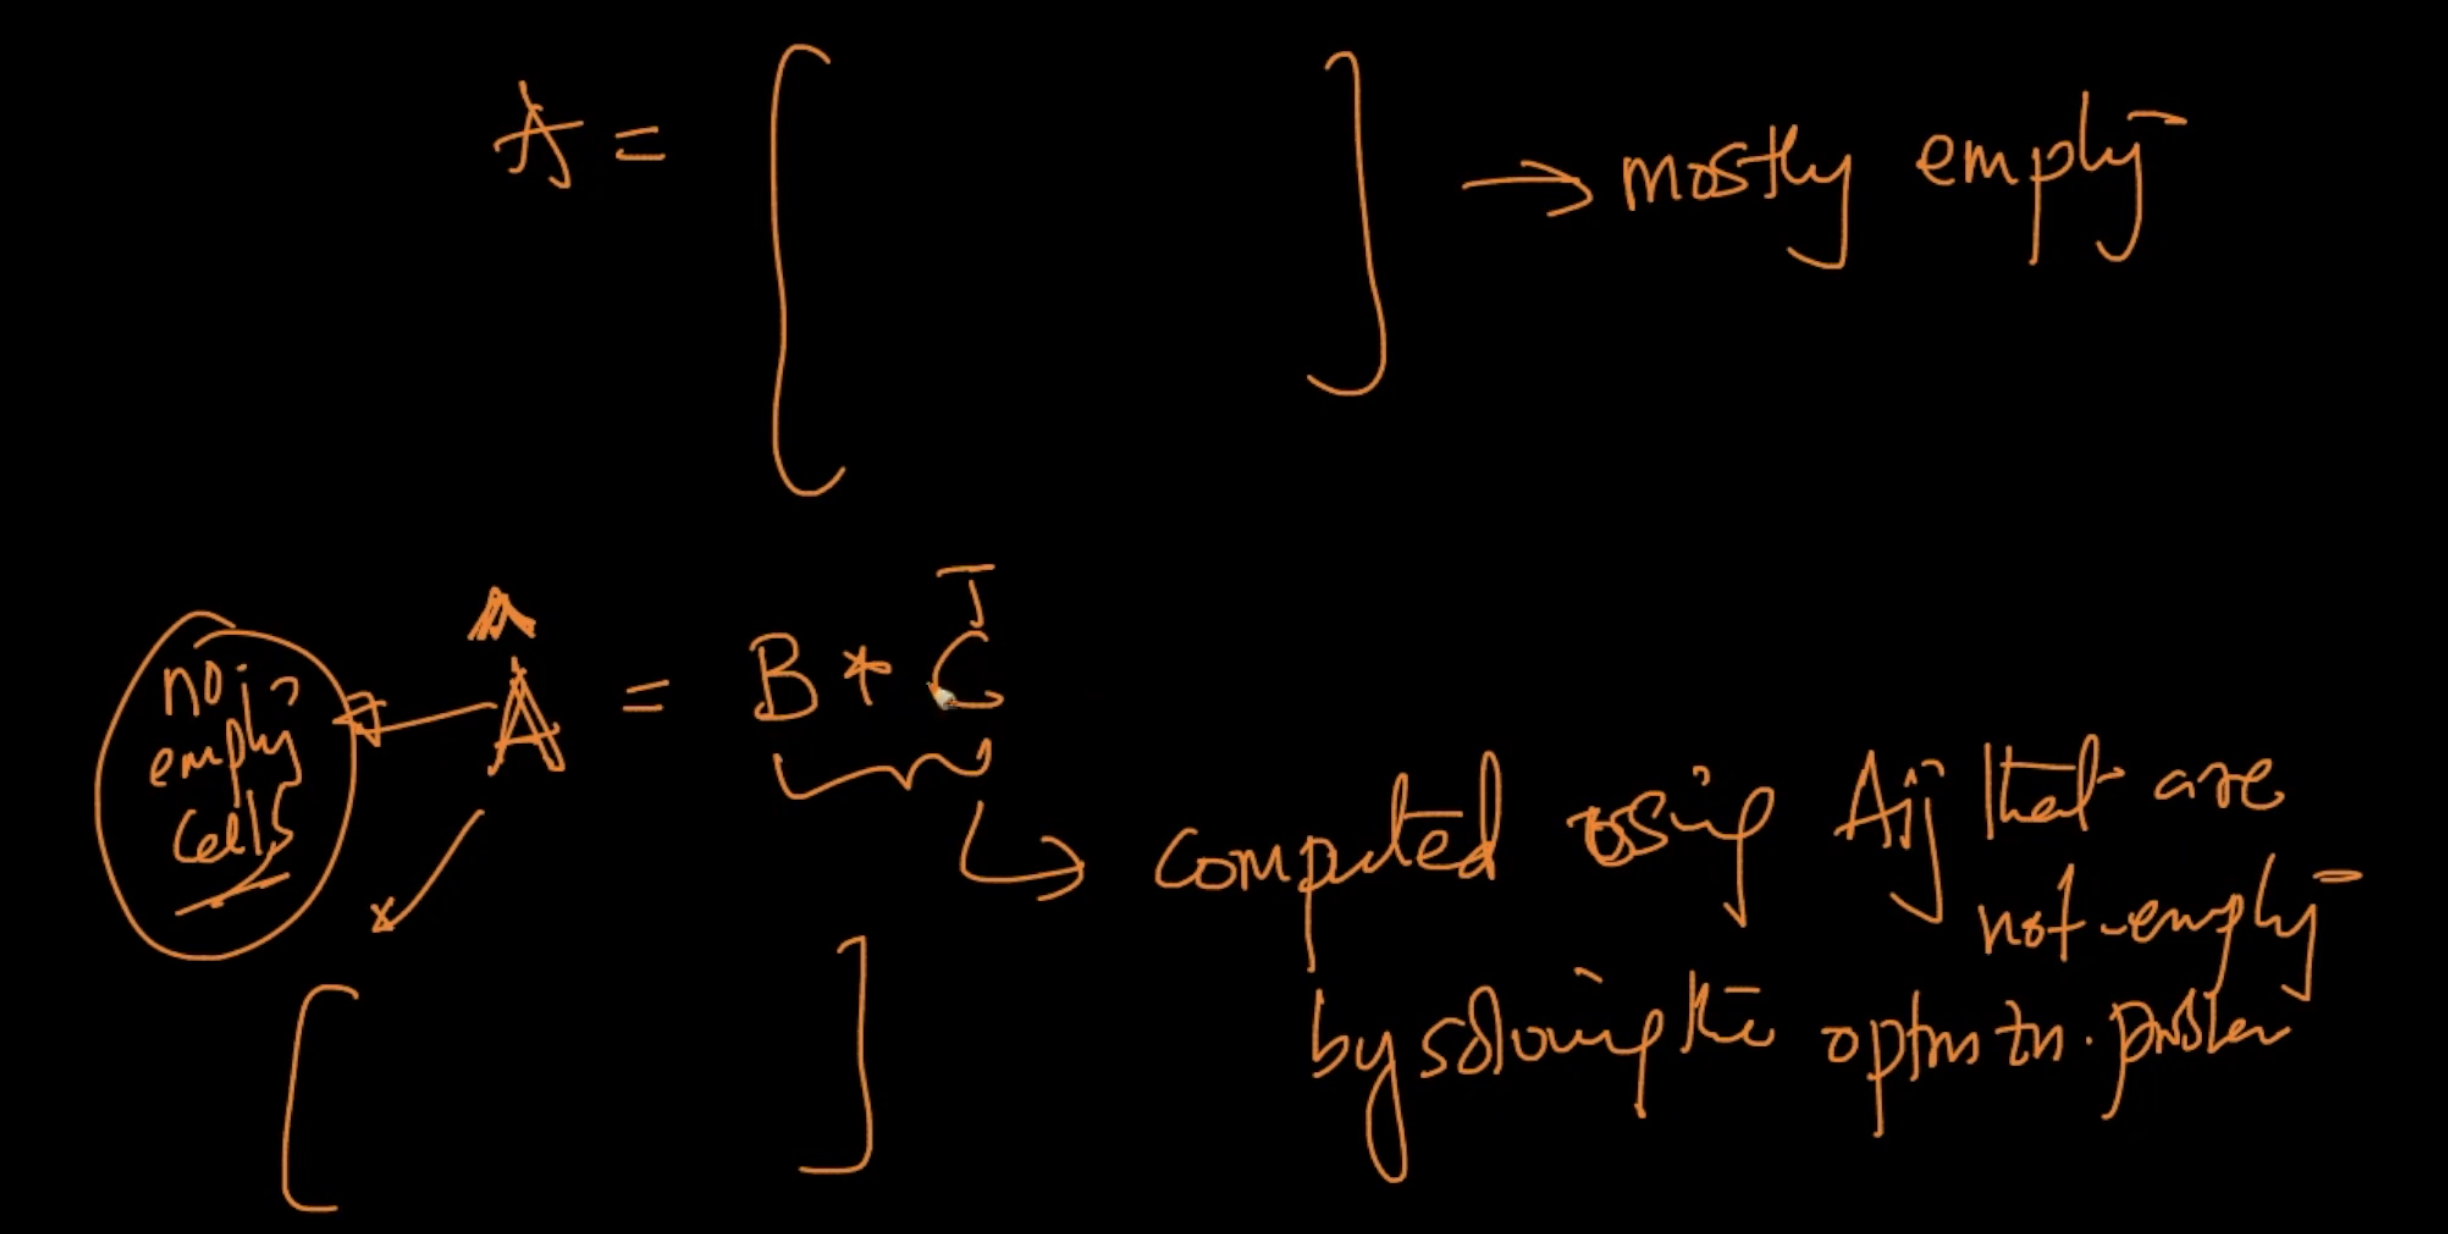 A = [ ] → mostly empty
Â = B * Cᵀ
no
empty
cells
computed using Aij that are
not-empty
by solving the optmztn. problem
[ ]